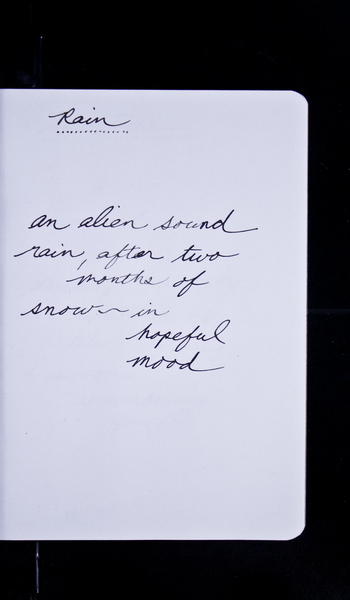 Rain
an alien sound
rain, after two
months of
snow~ in
hopeful
mood